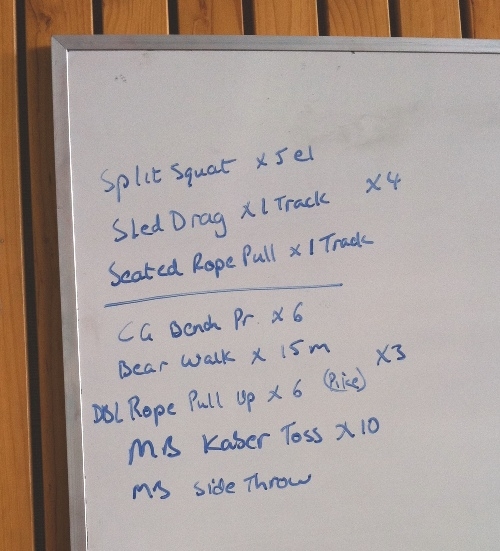 Split Squat x 5 el
Sled Drag x 1 Track x4
Seated Rope Pull x 1 Track
CG Bench Pr. x 6
Bear Walk x 15m
DBL Rope Pull Up x 6 x3
MB Kaber Toss x 10
MB Side Throw